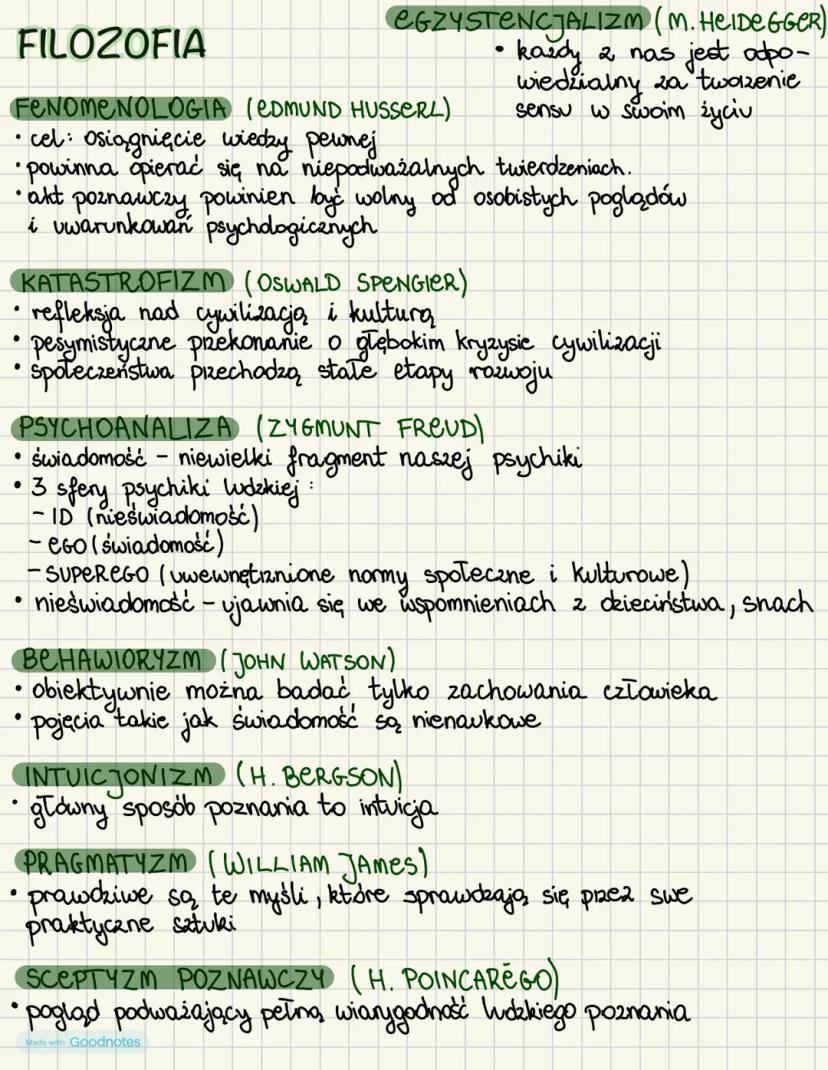 FILOZOFIA
EGZYSTENCJALIZM (M. HEIDEGGER)
• każdy z nas jest odpo-
wiedzialny za tworzenie
sensu w swoim życiu
FENOMENOLOGIA (EDMUND HUSSERL)
• cel: osiągnięcie wiedzy pewnej
• powinna opierać się na niepodważalnych twierdzeniach.
• akt poznawczy powinien być wolny od osobistych poglądów
i uwarunkowań psychologicznych
KATASTROFIZM (OSWALD SPENGIER)
• refleksja nad cywilizacją i kulturą
• pesymistyczne przekonanie o głębokim kryzysie cywilizacji
• społeczeństwa przechodzą stałe etapy rozwoju
PSYCHOANALIZA (ZYGMUNT FREUD)
• świadomość - niewielki fragment naszej psychiki
• 3 sfery psychiki ludzkiej:
- ID (nieświadomość)
- EGO (świadomość)
- SUPEREGO (uwewnętrznione normy społeczne i kulturowe)
• nieświadomość - ujawnia się we wspomnieniach z dzieciństwa, snach
BEHAWIORYZM (JOHN WATSON)
• obiektywnie można badać tylko zachowania człowieka
• pojęcia takie jak świadomość są nienaukowe
INTUICJONIZM (H. BERGSON)
• główny sposób poznania to intuicja
PRAGMATYZM (WILLIAM JAMES)
• prawdziwe są te myśli, które sprawdzają się przez swe
praktyczne sztuki
SCEPTYZM POZNAWCZY (H. POINCARĒGO)
• pogląd podważający pełną wiarygodność ludzkiego poznania
Made with Goodnotes